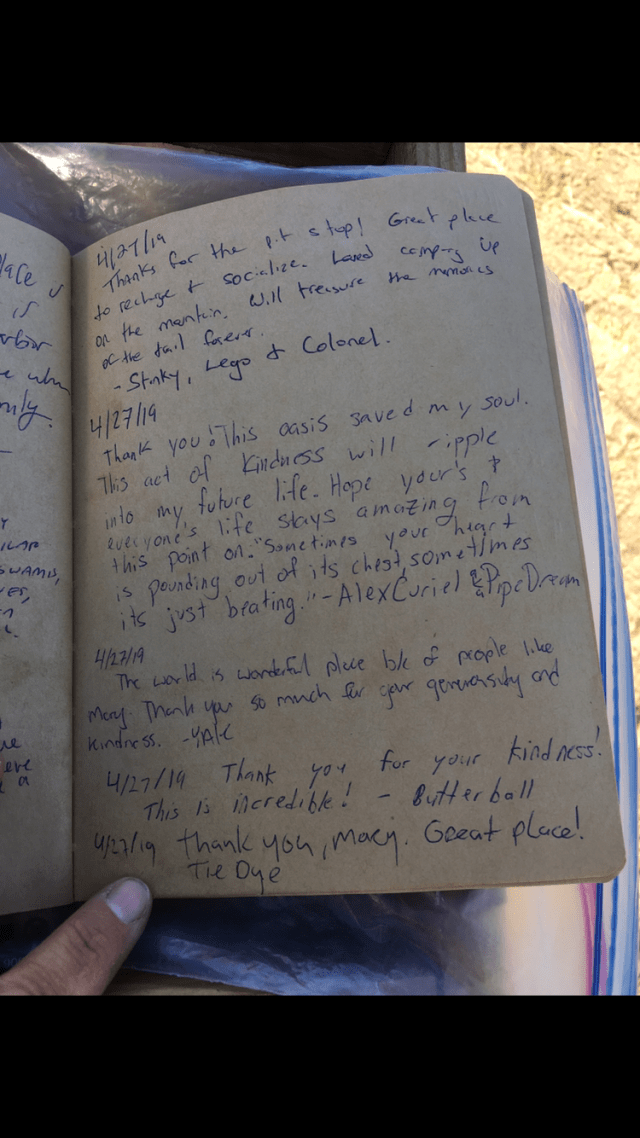 lace
is
4/27/19
Thanks for the pit stop! Great place
to recharge & socialize. Loved camping up
on the mountain. Will treasure the memories
of the trail forever.
- Stinky, Lego & Colonel.
4/27/19
Thank you! This oasis saved my soul.
This act of kindness will ripple
into my future life. Hope your's &
everyone's life stays amazing from
this point on. "Sometimes your heart
is pounding out of its chest, sometimes
its just beating." - Alex Curiel PipeDream
4/27/19
The world is wonderful place b/c of people like
Mary. Thank you so much for your generousity and
kindness.
4/27/19 Thank you for your kindness!
This is incredible! - Butterball
4/27/19 Thank you, Macy. Great place!
Tie Dye